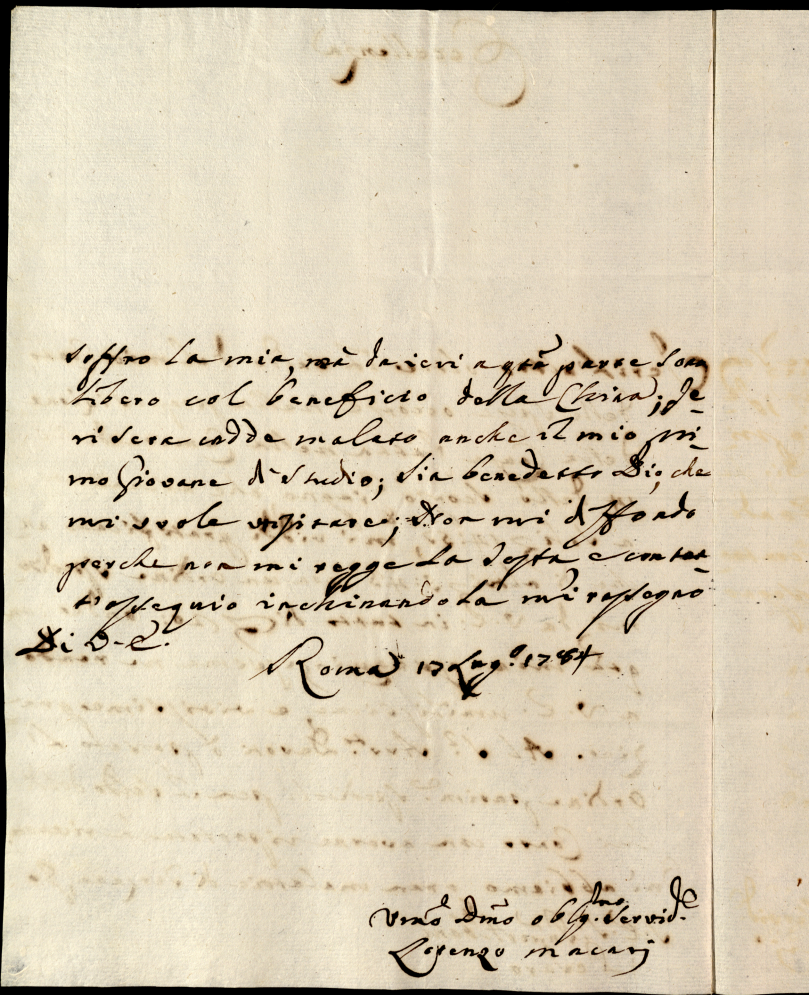 soffro la mia, mà da ieri a q.tà parte son
libero col beneficio della China; Je-
ri sera cadde malato anche il mio pri-
mo Giovane di Studio; Sia benedetto Dio, che
mi vuole visitare; Non mi diffondo
perche non mi regge la testa e con tut-
t'ossequio inchinandola mi rassegno
Di V. E.
Roma 17 Lug.o 1784
Umo Dmo obl.mo Servid.e
Lorenzo Macari